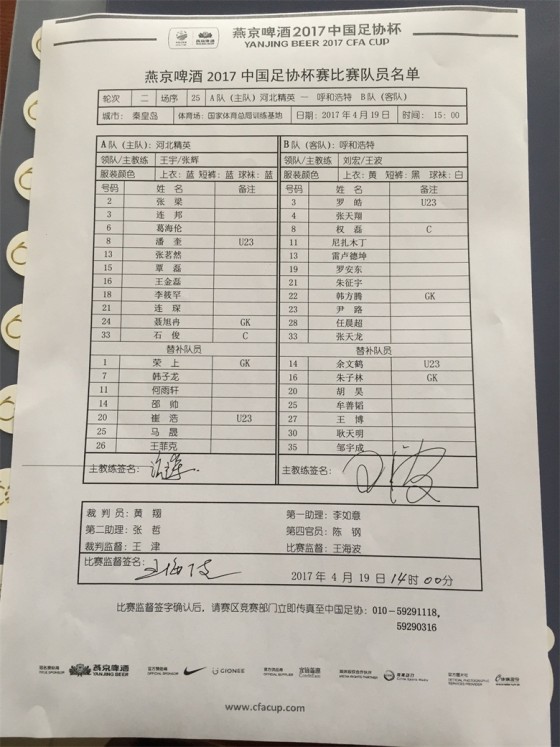 燕京啤酒2017中国足协杯
YANJING BEER 2017 CFA CUP
燕京啤酒 2017 中国足协杯赛比赛队员名单
轮次 二 场序 25 A 队（主队）河北精英 — 呼和浩特 B 队（客队）
城市：秦皇岛 体育场：国家体育总局训练基地 日期：2017 年 4 月 19 日 时间：15：00
A 队（主队）：河北精英 B 队（客队）：呼和浩特
领队/主教练 王宇/张辉 领队/主教练 刘宏/王波
服装颜色 上衣：蓝 短裤：蓝 球袜：蓝 服装颜色 上衣：黄 短裤：黑 球袜：白
号码 姓 名 备注 号码 姓 名 备注
2 张 梁 3 罗 皓 U23
3 连 邦 4 张天翔
6 葛海伦 8 权 磊 C
8 潘 奎 U23 11 尼扎木丁
13 张茗然 13 雷卢德坤
15 覃 磊 19 罗安东
16 王金磊 21 朱征宇
18 李筱罕 22 韩方腾 GK
21 连 琛 23 尹 路
24 聂旭冉 GK 28 任晨超
33 石 俊 C 33 张天龙
替补队员 替补队员
1 荣 上 GK 14 余文鹤 U23
7 韩子龙 16 朱子林 GK
11 何雨轩 20 胡 昊
14 邵 帅 25 牟善韬
20 崔 浩 U23 27 王 博
25 马 晟 30 耿天明
26 王菲克 35 邹宇成
主教练签名： 主教练签名：
裁 判 员：黄 翔 第一助理：李如意
第二助理：张 哲 第四官员：陈 钢
裁判监督：王 津 比赛监督：王海波
比赛监督签名： 2017 年 4 月 19 日 14 时 00 分
比赛监督签字确认后，请赛区竞赛部门立即传真至中国足协：010-59291118,
59290316
燕京啤酒
YANJING BEER
GIONEE
www.cfacup.com